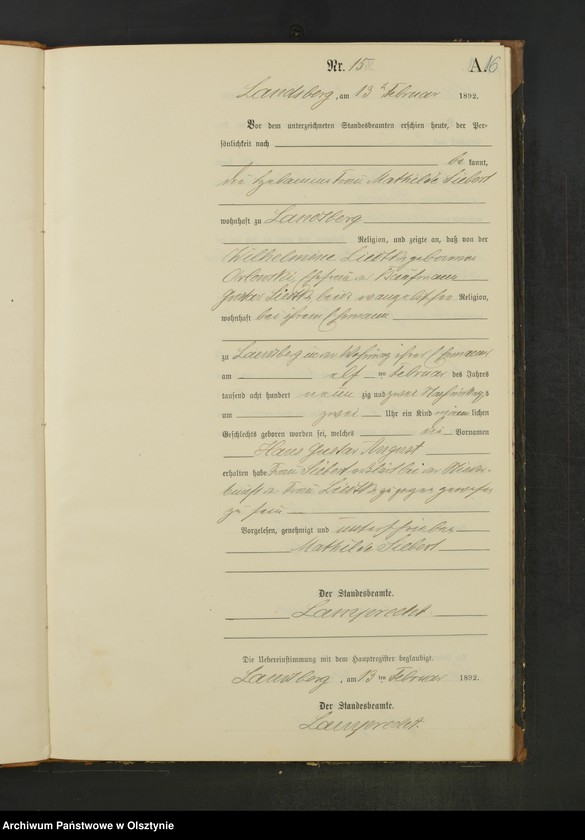 Nr. 15
A.
16
Landsberg, am 13ten Februar 1892.
Vor dem unterzeichneten Standesbeamten erschien heute, der Per-
sönlichkeit nach
be kannt,
die Hebamme Frau Mathilde Siebert
wohnhaft zu Landsberg
Religion, und zeigte an, daß von der
Wilhelmine geborenen
Orlowski, Ehefrau Kaufmann
evangelischer Religion,
wohnhaft bei ihrem Ehemann
zu Landsberg in der Wohnung ihres Ehemannes
am elf ten Februar des Jahres
tausend acht hundert neun zig und zwei Nachmittags
um zwei Uhr ein Kind männlichen
Geschlechts geboren worden sei, welches die Vornamen
Hans Gustav August
erhalten habe. Frau Siebert erklärt bei der Nieder-
kunft der Frau zugegen gewesen
zu sein
Vorgelesen, genehmigt und unterschrieben
Mathilde Siebert
Der Standesbeamte.
Lamprecht
Die Uebereinstimmung mit dem Hauptregister beglaubigt.
Landsberg, am 13ten Februar 1892.
Der Standesbeamte.
Lamprecht.
Archiwum Państwowe w Olsztynie